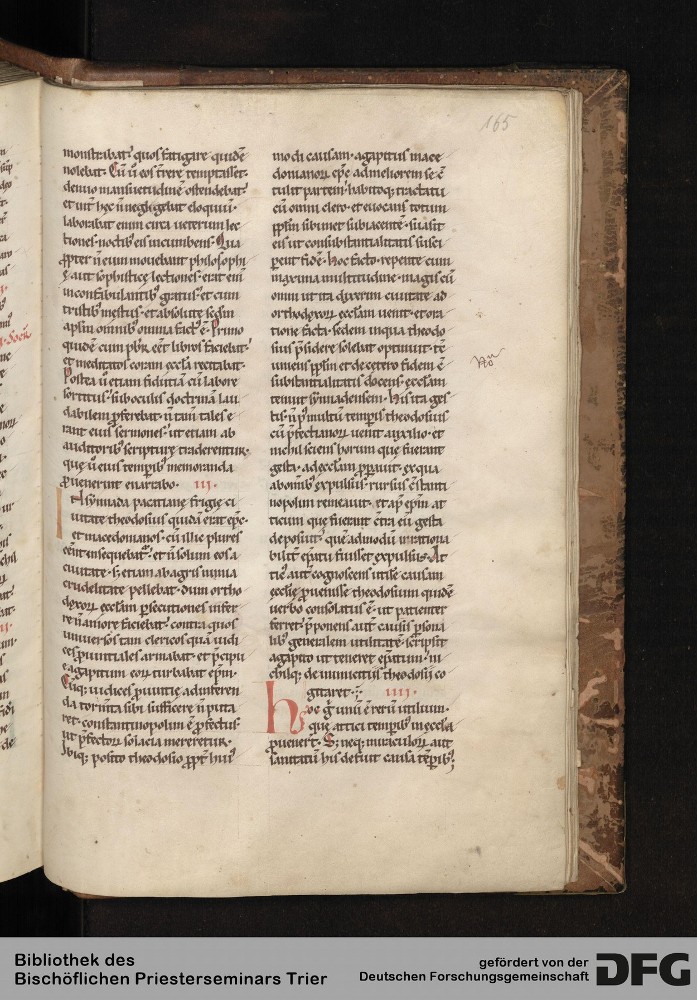 165
monstrabat quos fatigare quidē
nolebat. Cū ū eos t̄rere temptasset.
denuo mansuetudinē ostendebat
et uir hec n̄ negligebat eloquiū.
laborabat enim circa ueterum lec
tiones. noctib; eis incumbens. Qua
ꝓpter n̄ eum mouebant philosophi
ę aut sophisticę lectiones. erat enī
inconfabulantib; gratus. et cum
tristib; mestus. et absolute scdm
apłm omnib; omnia fact; ē. Primo
quidē cum pbr eēt libros faciebat.
et meditatos coram eccła recitabat.
Postea ū etiam fiduciā cū labore
sortitus. sub oculis doctrinā lau
dabilem ꝓferebat. n̄ tam tales e
rant eius sermones. ut etiam ab
auditorib; scripturę traderentur.
que ū eius temporib; memoranda
ꝓuenerint enarrabo. III.
In synnada pacatiane frigię ci
uitate theodosius quidā erat epc.
et macedonianos. cū illic plures
eēnt insequebat. et n̄ solum eos a
ciuitate. s; etiam ab agris nimia
crudelitate pellebat. dum ortho
doxorū ecclam ꝑsecutiones infer
re n̄ amore faciebat. contra quos
uniuersos tam clericos quā iudi
ces ꝓuintiales armabat. et p̄cipu
e agapitum eorū turbabat epm.
Cūq; iudices ꝓuintię adinferen
da torm̄ta sibi sufficere n̄ puta
ret. constantinopolim ē ꝓfectus.
ut p̄fectorū solacia mereretur.
Ibiq; posito theodosio ꝓpt̄ hui;
modi causam. agapitus mace
donianorū epc̄ ad meliorem se ē
tulit partem. habitoq; tractatu
cū omni clero. et euocans totum
pplm sibimet subiacentē. suasit
eis ut consubstantialitatis susci
perent fidē. hoc facto. repente cum
maxima multitudine. magis cū
omni ut ita dixerim ciuitate ad
orthodoxorū ecclam uenit. et ora
tione facta. sedem in qua theodo
sius p̄sidere solebat optinuit. tē
uniens pplm et de cetero fidem ē
substantialitatis docens. ecclam
tenuit synnadensem. his ita ges
tis. n̄ p; multū temporis theodosius
cū p̄fectianorū uenit auxilio. et
nichil sciens horum que fuerant
gesta. ad ecclam ꝑparauit. ex qua
ab omib; expulsus. rursus c̄stanti
nopolim remeauit. et ap; epm at
ticum que fuerant c̄tra eū gesta
deposuit. quēadmodū irratiōna
bilit̄ epatu fuisset expulsus. At
tic; aut̄ cognoscens utile causam
ecclię ꝓuenisse. theodosium quidē
uerbo consolatus ē. ut patienter
ferret. p̄ponens aut̄ causis psona
lib; generalem utilitatē. scripsit
agapito ut teneret epatum. ni
chilq; de inimicitiis theodosii co
gitaret. IIII.
hoc g̊ unū ē rerū utilium.
que attici temporib; in eccła
ꝓuenert. S; neq; miraculorū aut
sanitatū his defuit causa tēporib;
Bibliothek des
Bischöflichen Priesterseminars Trier
gefördert von der
Deutschen Forschungsgemeinschaft
DFG